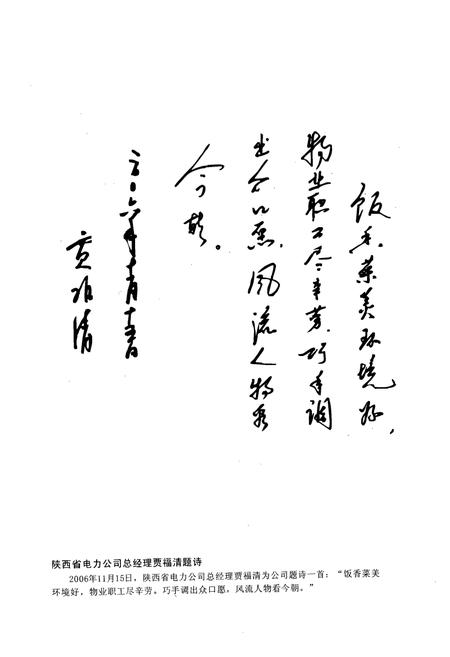 饭香菜美环境好,
物业职工尽辛劳,巧手调
出众口愿,风流人物看
今朝。
二〇〇六年十一月十五日
贾福清
陕西省电力公司总经理贾福清题诗
2006年11月15日，陕西省电力公司总经理贾福清为公司题诗一首：“饭香菜美
环境好，物业职工尽辛劳。巧手调出众口愿，风流人物看今朝。”